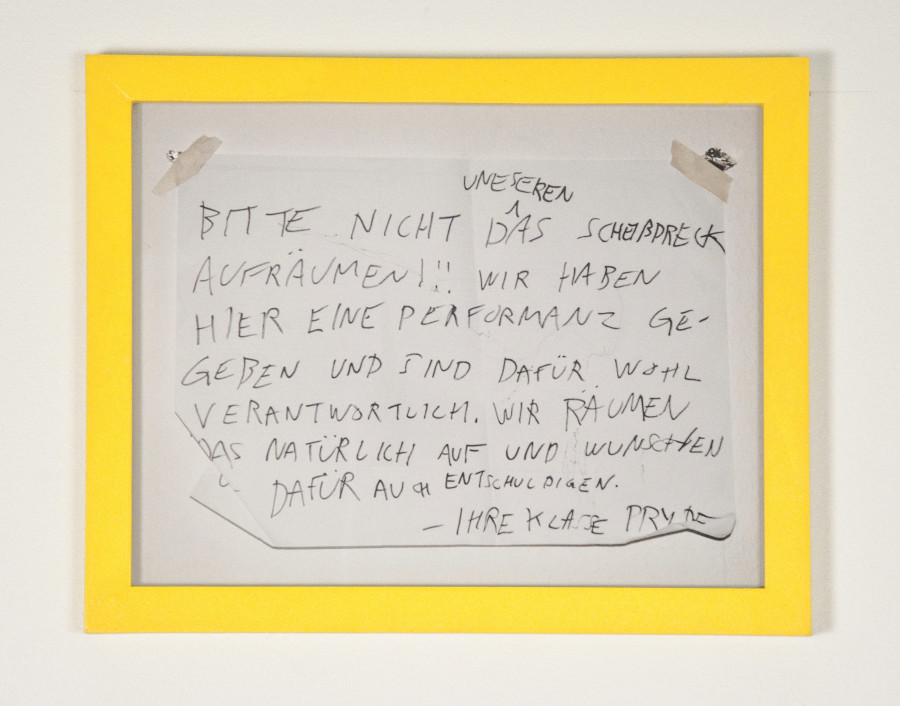 UNESEREN
BITTE NICHT DAS SCHEIßDRECK
AUFRÄUMEN!!! WIR HABEN
HIER EINE PERFORMANZ GE-
GEBEN UND SIND DAFÜR WOHL
VERANTWORTLICH. WIR RÄUMEN
DAS NATÜRLICH AUF UND WUNSCHEN
DAFÜR AUCH ENTSCHULDIGEN.
– IHRE KLASSE